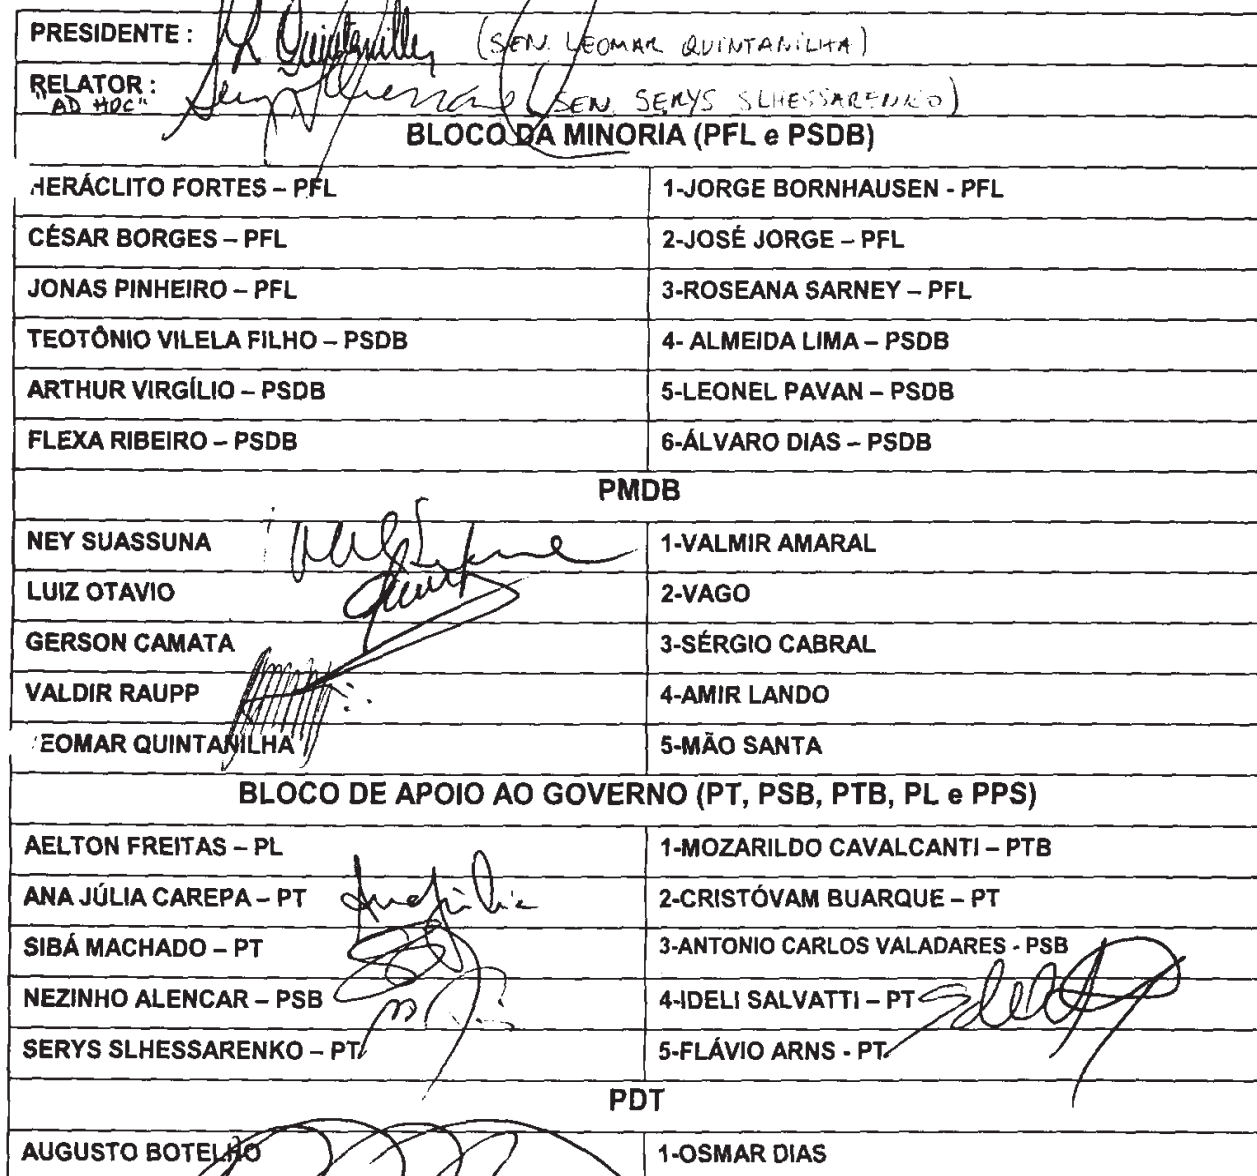 PRESIDENTE : (SEN. LEOMAR QUINTANILHA)
RELATOR : "AD HOC" (SEN. SERYS SLHESSARENKO)
BLOCO DA MINORIA (PFL e PSDB)
HERÁCLITO FORTES – PFL 1-JORGE BORNHAUSEN - PFL
CÉSAR BORGES – PFL 2-JOSÉ JORGE – PFL
JONAS PINHEIRO – PFL 3-ROSEANA SARNEY – PFL
TEOTÔNIO VILELA FILHO – PSDB 4- ALMEIDA LIMA – PSDB
ARTHUR VIRGÍLIO – PSDB 5-LEONEL PAVAN – PSDB
FLEXA RIBEIRO – PSDB 6-ÁLVARO DIAS – PSDB
PMDB
NEY SUASSUNA 1-VALMIR AMARAL
LUIZ OTAVIO 2-VAGO
GERSON CAMATA 3-SÉRGIO CABRAL
VALDIR RAUPP 4-AMIR LANDO
EOMAR QUINTANILHA 5-MÃO SANTA
BLOCO DE APOIO AO GOVERNO (PT, PSB, PTB, PL e PPS)
AELTON FREITAS – PL 1-MOZARILDO CAVALCANTI – PTB
ANA JÚLIA CAREPA – PT 2-CRISTÓVAM BUARQUE – PT
SIBÁ MACHADO – PT 3-ANTONIO CARLOS VALADARES - PSB
NEZINHO ALENCAR – PSB 4-IDELI SALVATTI – PT
SERYS SLHESSARENKO – PT 5-FLÁVIO ARNS - PT
PDT
AUGUSTO BOTELHO 1-OSMAR DIAS